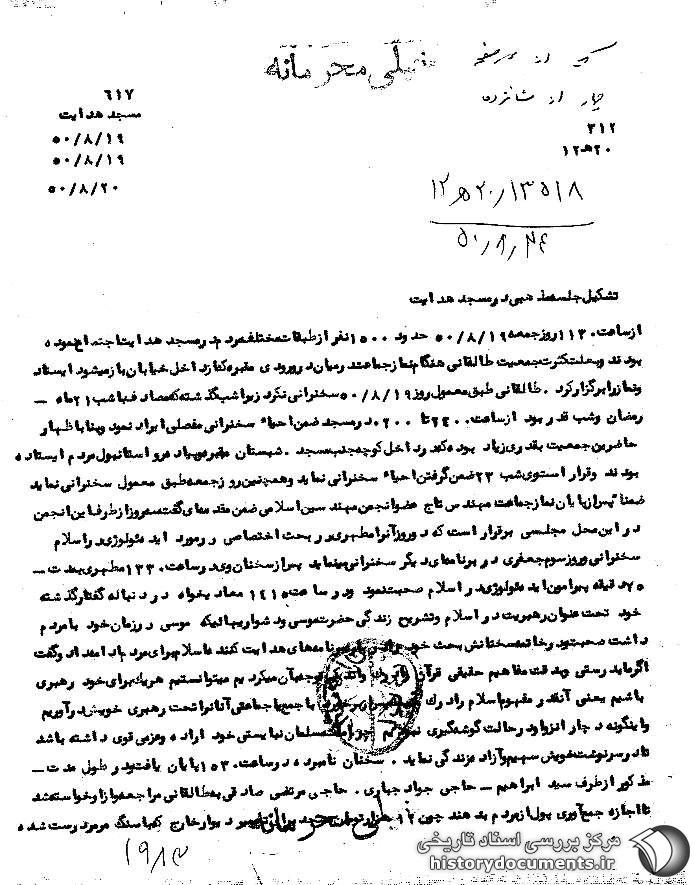 خیلی محرمانه
از
چهار از شانزده
۳۱۲
۲۰هـ۱۲
۶۱۷
مسجد هدایت
۵۰/۸/۱۹
۵۰/۸/۱۹
۵۰/۸/۲۰
۱۲هـ۲۰/۱۳۵۱۸
۵۰/۸/۲۴
تشکیل جلسه مذهبی در مسجد هدایت
از ساعت ۱۱۳۰ روز جمعه ۵۰/۸/۱۹ حدود ۱۵۰۰ نفر از طبقات مختلفه مردم در مسجد هدایت اجتماع نموده
بودند و بعلت کثرت جمعیت طالقانی هنگام نماز جماعت در میان در ورودی مقبره که از داخل خیابان باز میشود ایستاد
و نماز را برگزار کرد . طالقانی طبق معمول روز ۵۰/۸/۱۹ سخنرانی نکرد زیرا شب گذشته که مصادف با شب ۲۱ ماه ـ
رمضان و شب قدر بود از ساعت ۲۲۰۰ تا ۰۲۰۰ در مسجد ضمن احیاء سخنرانی مفصلی ایراد نمود و بنا باظهار
حاضرین جمعیت بقدری زیاد بوده که در داخل کوچه جنب مسجد . شبستان مقبره و پیاده رو استانبول مردم ایستاده
بودند و قرار است وی شب ۲۳ ضمن گرفتن احیاء سخنرانی نماید و همچنین روز جمعه طبق معمول سخنرانی نماید
ضمنا پس از پایان نماز جماعت مهندس تاج عضو انجمن مهندسین اسلامی ضمن مقدمه ای گفت سه روز از طرف این انجمن
در این محل مجلسی برقرار است که دو روز آنرا مطهری در بحث اختصاصی در مورد ایدئولوژی در اسلام
سخنرانی و روز سوم جعفری در برنامه ای دیگر سخنرانی مینماید پس از سخنان وی در ساعت ۱۳۳۰ مطهری بمدت ـ
۴۵ دقیقه پیرامون ایدئولوژی در اسلام صحبت نمود و در ساعت ۱۴۱۵ معادیخواه در دنباله گفتار گذشته
خود تحت عنوان رهبریت در اسلام و تشریح زندگی حضرت موسی و دشواریهائیکه موسی در زمان خود با مردم
داشت صحبت و در خاتمه سخنانش بحث خود را برنامه های هدایت کننده اسلام برای مردم ادامه داد و گفت
اگر ما بدرستی و بدقت مفاهیم حقیقی قرآن را درک و آنرا ترجمه آن میکردیم میتوانستیم هر یک برای خود رهبری
باشیم یعنی آنقدر مفهوم اسلام را درک با جمع یا جماعتی آنانرا تحت رهبری خویش در آوریم
و اینگونه دچار انزوا و در حالت گوشه گیری نبودیم چرا مسلمان نبایستی خود اراده و عزمی قوی داشته باشد
تا در سرنوشت خویش سهیم و آزاده زندگی نماید . سخنان نامبرده در ساعت ۱۵۳۰ پایان یافت و در طول مدت ـ
مذکور از طرف سید ابراهیم ـ حاجی جواد جباری . حاجی مرتضی صادقی به طالقانی مراجعه و از او خواسته شد
تا اجازه جمع آوری پول از مردم بدهند چون ۱۲ هزار تومان دیوار خارج که با سنگ مرمر درست شده
خیلی محرمانه
۱۹۸۳
مرکز بررسی اسناد تاریخی
historydocuments.ir